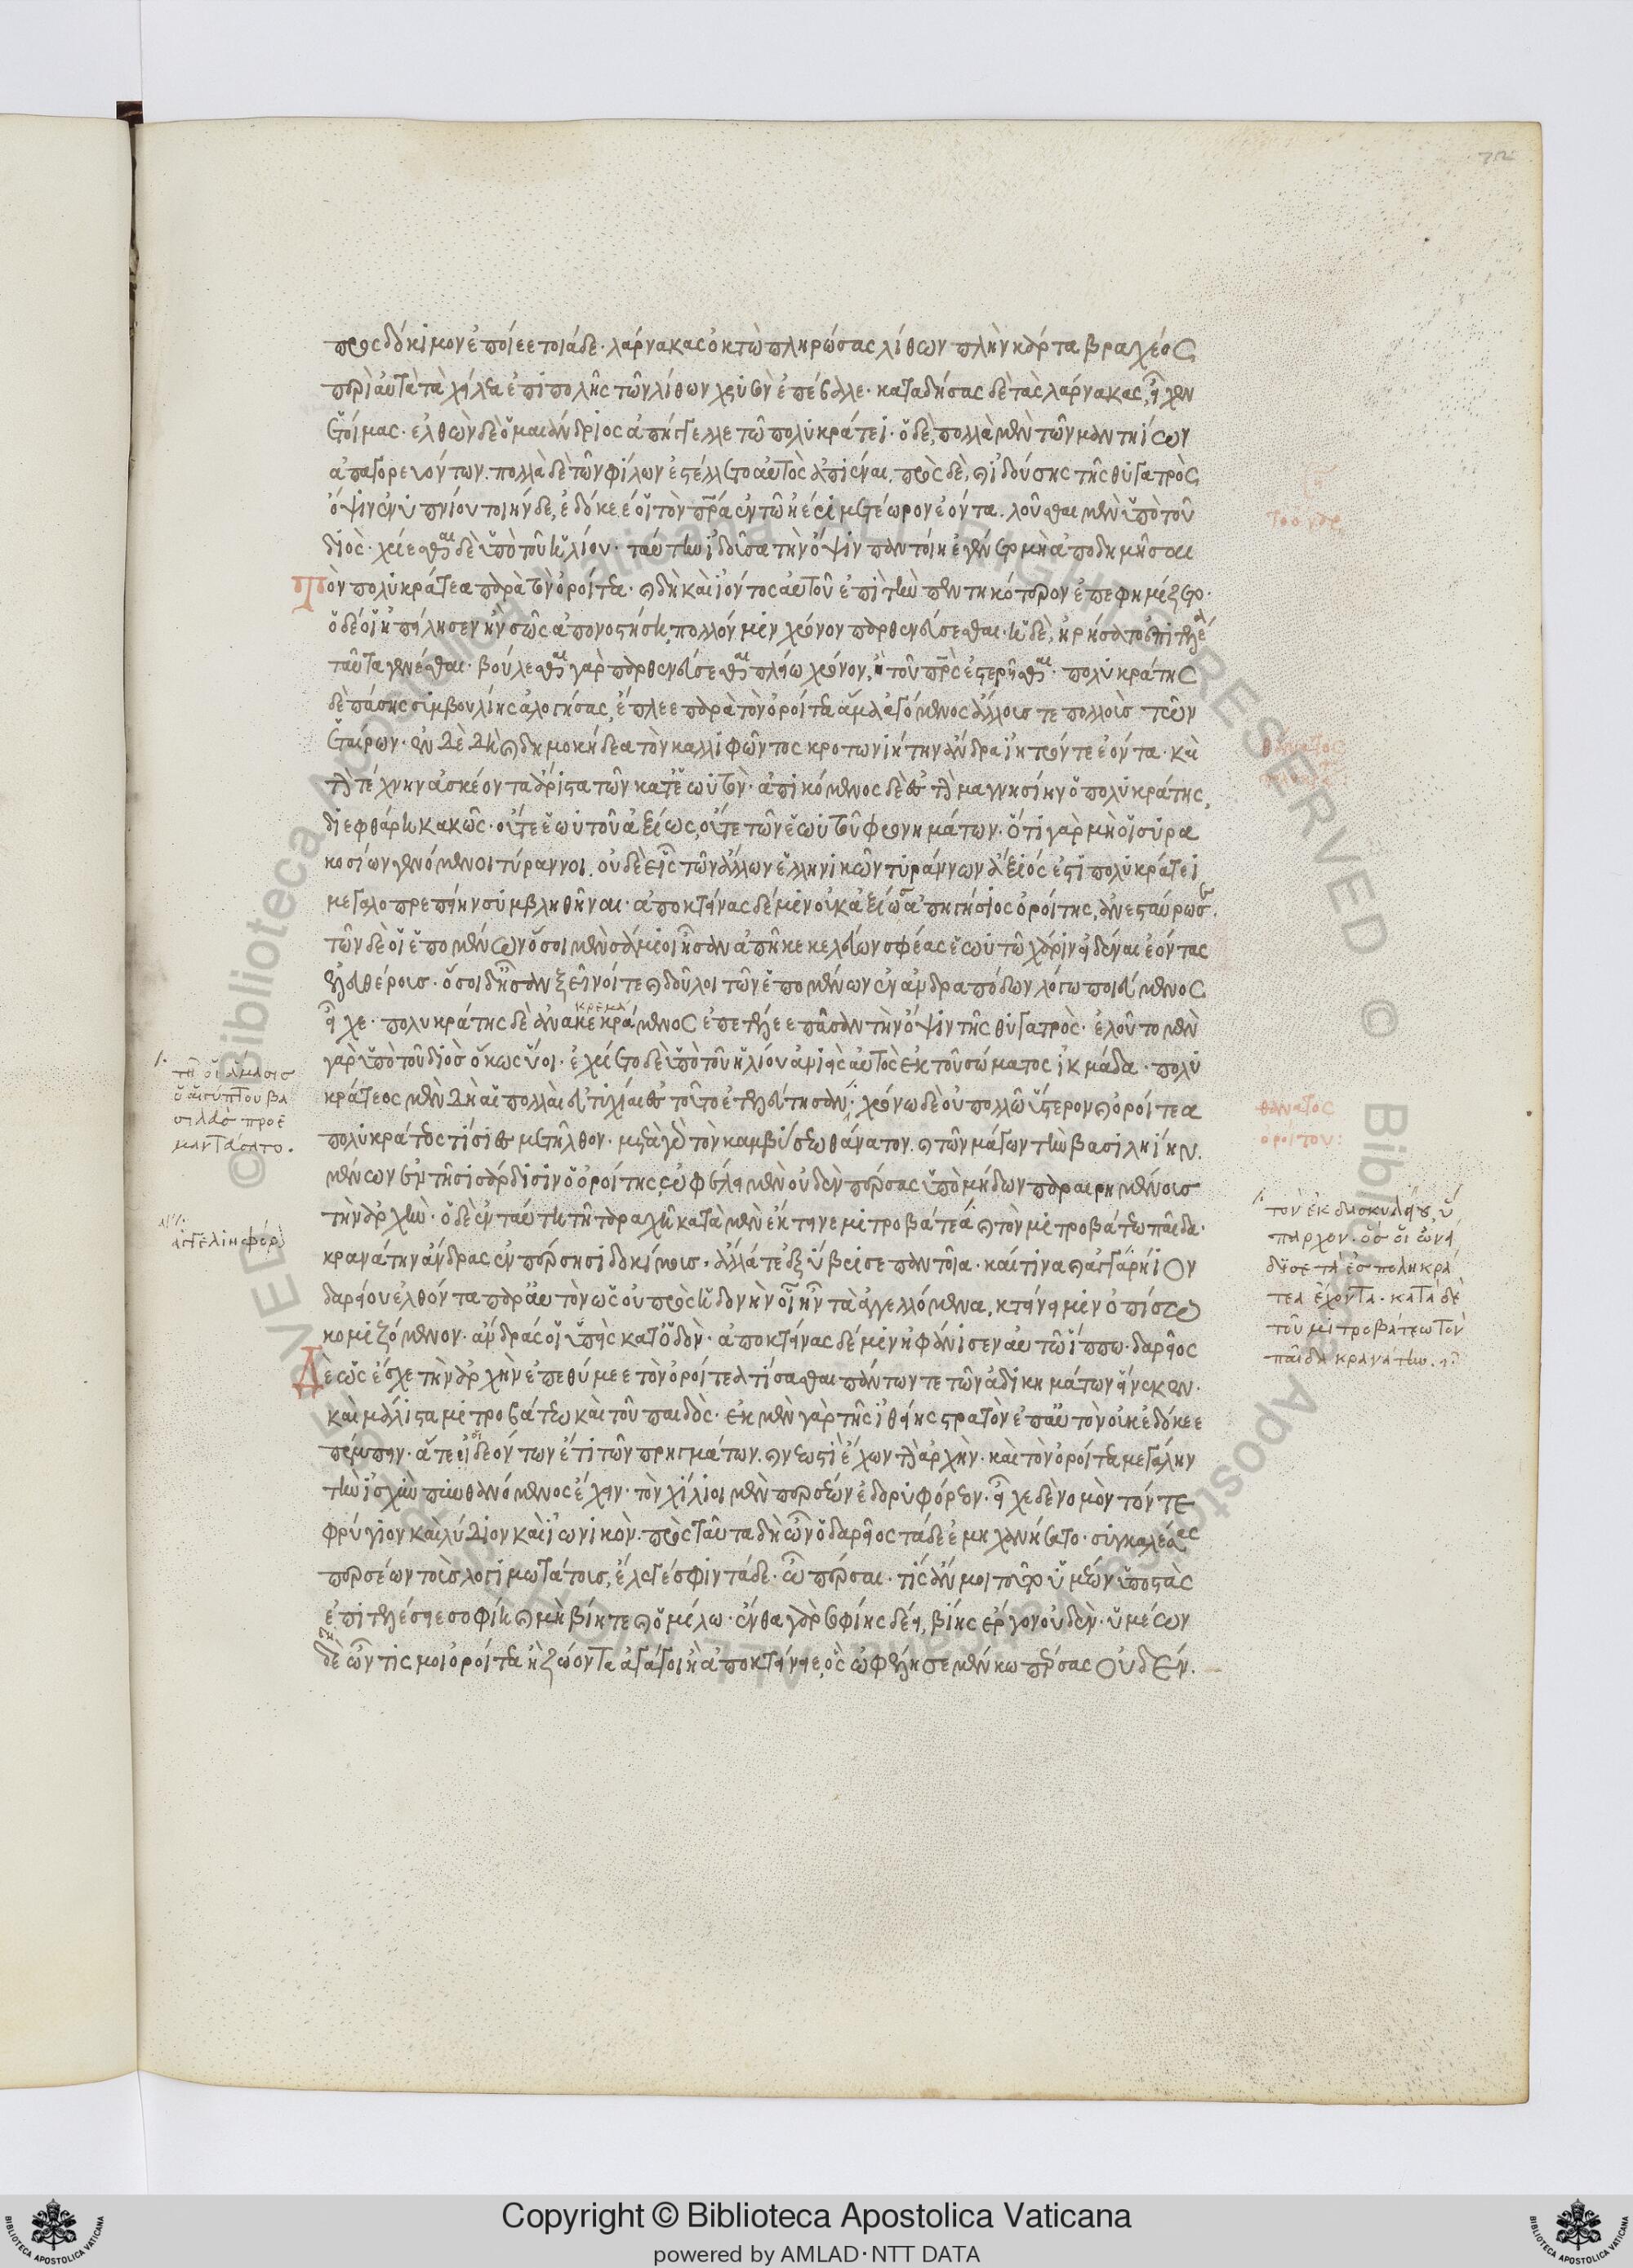 προσδόκιμον ἐποίεε τοιάδε· λάρνακας ὀκτὼ πληρώσας λίθων πλὴν κάρτα βραχέος
περὶ αὐτὰ τὰ χείλεα ἐπιπολῆς τῶν λίθων χρυσὸν ἐπέβαλε· καταδήσας δὲ τὰς λάρνακας, εἶχεν
ἑτοίμας· ἐλθὼν δὲ ὁ μαιάνδριος ἀπήγγελλε τῶ πολυκράτει· ὁ δὲ, πολλὰ μὲν τῶν μαντηίων
ἀπαγορευόντων. πολλὰ δὲ τῶν φίλων ἐστέλλετο αὐτὸς ἀπιέναι. πρὸς δὲ, καὶ ἰδούσης τῆς θυγατρὸς
ὄψιν ἐνυπνίου τοιήνδε, ἐδόκεέ οἱ τὸν πρα ἐν τῶ ἠέρι μετέωρον ἐόντα. λοῦσθαι μὲν ὑπὸ τοῦ
διὸς· χρίεσθαι δὲ ὑπὸ τοῦ ἡλίου· ταύτην ἰδοῦσα τὴν ὄψιν παντοίη ἐγένετο μὴ ἀποδημῆσαι
τὸν πολυκράτεα παρὰ τὸν ὀροίτεα· καὶ δὴ καὶ ἰόντος αὐτοῦ ἐπὶ τὴν πεντηκόντερον ἐπεφημίζετο·
ὁ δέ οἱ ἠπείλησεν ἢν σῶς ἀπονοστήσῃ, πολλόν μιν χρόνον παρθενεύσεσθαι· ἡ δὲ, ἠρήσατο ἐπιτελέα
ταῦτα γενέσθαι· βούλεσθαι γὰρ παρθενεύσεσθαι πλείω χρόνον, ἢ τοῦ πρς ἐστερῆσθαι· πολυκράτης
δὲ πάσης συμβουλίης ἀλογήσας, ἔπλεε παρὰ τὸν ὀροίτεα ἅμα ἀγόμενος ἄλλους τε πολλοὺς τῶν
ἑταίρων· ἐν δὲ δὴ καὶ δημοκήδεα τὸν καλλιφῶντος κροτωνιήτην ἄνδρα ἰητρόν τε ἐόντα· καὶ
τὴν τέχνην ἀσκέοντα ἄριστα τῶν κατ' ἑωυτὸν· ἀπικόμενος δὲ ἐς τὴν μαγνησίην ὁ πολυκράτης,
διεφθάρη κακῶς· οὔτε ἑωυτοῦ ἀξίως, οὔτε τῶν ἑωυτοῦ φρονημάτων· ὅτι γὰρ μὴ οἱ συρα
κοσίων γενόμενοι τύραννοι. οὐδὲ εἷς τῶν ἄλλων ἑλληνικῶν τυράννων ἄξιός ἐστι πολυκράτεϊ
μεγαλοπρεπείην συμβληθῆναι· ἀποκτείνας δέ μιν οὐκ ἀξίως ἀπηγήσιος ὀροίτης, ἀνεσταύρωσε.
τῶν δὲ οἱ ἑπομένων ὅσοι μὲν σάμιοι ἦσαν ἀπῆκε κελεύων σφέας ἑωυτῶ χάριν εἰδέναι ἐόντας
ἐλευθέρους· ὅσοι δὲ ἦσαν ξεῖνοί τε καὶ δοῦλοι τῶν ἑπομένων ἐν ἀνδραπόδων λόγω ποιεύμενος
εἶχε· πολυκράτης δὲ ἀνακεκράμενος ἐπετέλεε πᾶσαν τὴν ὄψιν τῆς θυγατρὸς· ἐλοῦτο μὲν
κρεμά
γὰρ ὑπὸ τοῦ διὸς ὅκως ὕοι· ἐχρίετο δὲ ὑπὸ τοῦ ἡλίου ἀνιεὶς αὐτὸς ἐκ τοῦ σώματος ἰκμάδα· πολυ
κράτεος μὲν δὴ αἱ πολλαὶ εὐτυχίαι ἐς τοῦτο ἐτελεύτησαν· χρόνω δὲ οὐ πολλῶ ὕστερον καὶ ὀροίτεα
πολυκράτεος τίσιες μετῆλθον· μετὰ γὰρ τὸν καμβύσεω θάνατον. καὶ τῶν μάγων τὴν βασιληίην.
μένων ἐν τῆσι σάρδισιν ὁ ὀροίτης, ὠφέλει μὲν οὐδὲν πέρσας ὑπὸ μήδων παραιρημένους
τὴν ἀρχὴν· ὁ δὲ ἐν ταύτη τῆ ταραχῆ κατὰ μὲν ἔκτεινε μιτροβάτεα καὶ τὸν μιτροβάτεω παῖδα·
κρανάτην ἄνδρας ἐν πέρσησι δοκίμους· ἄλλα τε ἐξύβρισε παντοῖα· καί τινα καὶ ἀγγαρήιον
δαρείου ἐλθόντα παρ' αὐτὸν ὡς οὐ πρὸς ἡδονὴν οἱ ἦν τὰ ἀγγελλόμενα, κτείνει μιν ὀπίσω
κομιζόμενον· ἄνδρας οἱ ὑπεὶς κατ' ὁδὸν· ἀποκτείνας δέ μιν ἠφάνισεν αὐτῶ ἵππω· δαρεῖος
δὲ ὡς ἔσχε τὴν ἀρχὴν ἐπεθύμεε τὸν ὀροίτεα τίσασθαι πάντων τε τῶν ἀδικημάτων εἵνεκεν·
καὶ μάλιστα μιτροβάτεω καὶ τοῦ παιδὸς· ἐκ μὲν γὰρ τῆς ἰθείης στρατὸν ἐπ' αὐτὸν οὐκ ἐδόκεε
πέμπειν· ἅτε οἰδεόντων ἔτι τῶν πρηγμάτων. καὶ νεωστὶ ἔχων τὴν ἀρχὴν· καὶ τὸν ὀροίτεα μεγάλην
τὴν ἰσχὺν πυνθανόμενος ἔχειν· τὸν χίλιοι μὲν περσέων ἐδορυφόρεον· εἶχε δὲ νομὸν τόν τε
φρύγιον καὶ λύδιον καὶ ἰωνικὸν. πρὸς ταῦτα δὴ ὦν ὁ δαρεῖος τάδε ἐμηχανήσατο· συγκαλέσας
περσέων τοὺς λογιμωτάτους, ἔλεγέ σφιν τάδε· ὦ πέρσαι· τίς ἄν μοι τοῦτο ὑμέων ὑποστὰς
ἐπιτελέσειε σοφίῃ καὶ μὴ βίῃ τε καὶ ὁμίλω· ἔνθα γὰρ σοφίης δέει, βίης ἔργον οὐδὲν· ὑμέων
δὲ ὦν τίς μοι ὀροίτεα ἢ ζώοντα ἀγάγοι ἢ ἀποκτείνειε, ὃς ὠφέλησε μέν κω πέρσας οὐδέν.
τῆ οἱ ἄμασις
ὁ αἰγύπτου βα
σιλεὺς προε
μαντεύσατο.
ἀγγελιηφόρον
θάνατος
ὀροίτου:
τὸν ἐκ δασκυλείου ὕ
παρχον· ὅς οἱ ὠνεί
δισε τὰ ἐς πολυκρά
τεα ἔχοντα· κατὰ δὲ
τοῦ μιτροβάτεω τὸν
παῖδα κρανάτην.